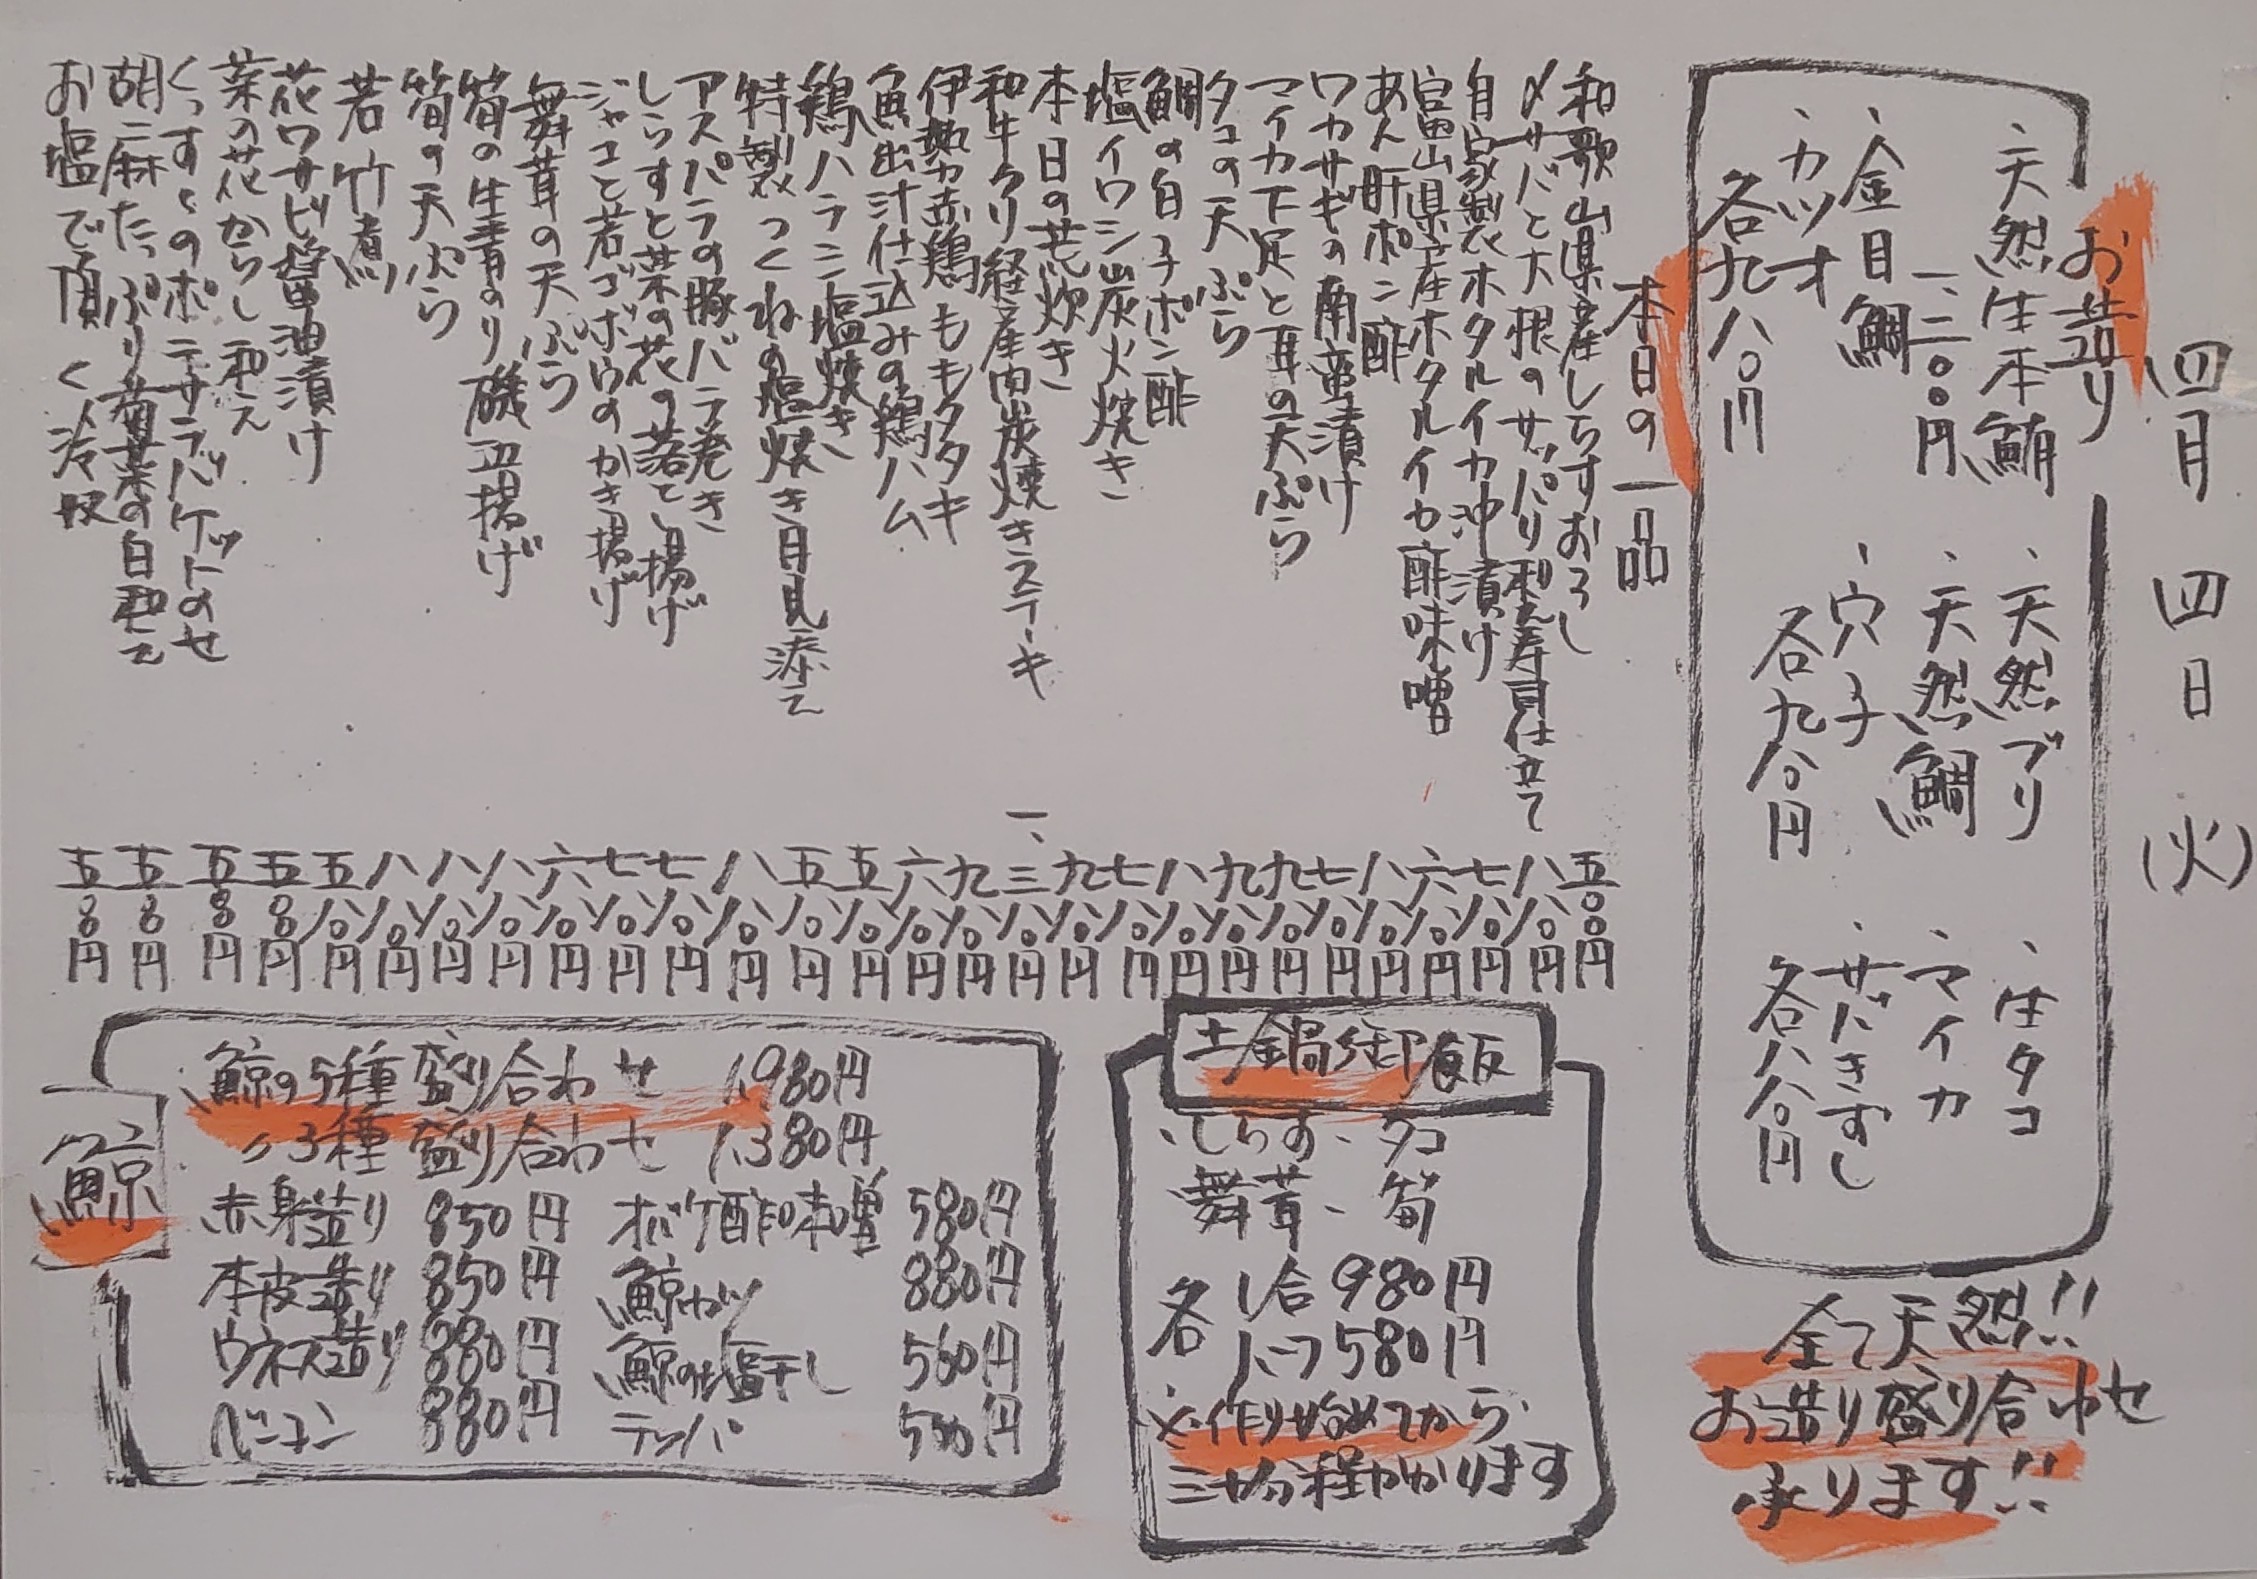 四月四日(火)
お造り
、天然生本鮪
一、二〇〇円
、金目鯛
、カツオ
各九八〇円
、天然ブリ
、天然鯛
、穴子
各九八〇円
、生タコ
、マイカ
、サバきずし
各八八〇円
全て天然!!
お造り盛り合わせ
承ります!!
本日の一品
和歌山県産しらすおろし 五〇〇円
〆サバと大根のサッパリ和え寿司仕立て 八八〇円
自家製ホタルイカ沖漬け 七八〇円
富山県産ホタルイカ酢味噌 六八〇円
あん肝ポン酢 八八〇円
ワカサギの南蛮漬け 七八〇円
マイカ下足と耳の天ぷら 九八〇円
タコの天ぷら 九八〇円
鯛の白子ポン酢 八八〇円
塩イワシ炭火焼き 七八〇円
本日の荒炊き 九八〇円
和牛クリ経産肉炭焼きステーキ 一、三八〇円
伊勢赤鶏ももタタキ 九八〇円
魚出汁仕込みの鶏ハム 六八〇円
鶏ハラミ塩焼き 五八〇円
特製つくねの塩焼き月見添え 五八〇円
アスパラの豚バラ巻き 八八〇円
しらすと菜の花の落とし揚げ 七八〇円
ジャコと若ゴボウのかき揚げ 七八〇円
舞茸の天ぷら 六八〇円
筍の生青のり磯辺揚げ 八八〇円
筍の天ぷら 八八〇円
若竹煮 八八〇円
花ワサビ醤油漬け 五八〇円
菜の花からし和え 五八〇円
くっすぅのポテサラバケットのせ 五八〇円
胡麻たっぷり菊菜の白和え 五八〇円
お塩で頂く冷奴 五八〇円
土鍋御飯
、しらす、タコ
舞茸、筍
各 1合 980円
ハーフ 580円
※作り始めてから
三十分程かかります
鯨
鯨の5種盛り合わせ 1,980円
〃3種盛り合わせ 1,380円
赤身造り 850円 オバケ酢味噌 580円
本皮造り 850円 鯨カツ 880円
ウネス造り 880円 鯨の塩干し 560円
ベーコン 880円 テッパ 500円